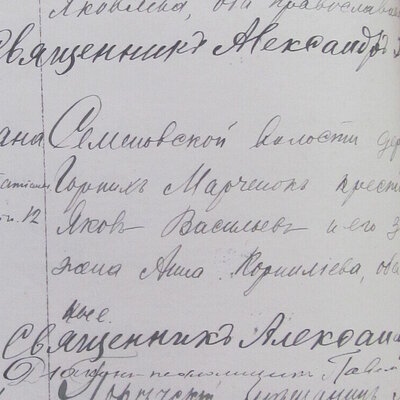 Яковлева, оба православн
Священникъ Александръ
ана Семеновской волости дер
Горнихъ Марченокъ крест
п. 12 Яковъ Васильевъ и его з
жена Анна Корнилiева, оба
ные.
Священникъ Алексан
Павел